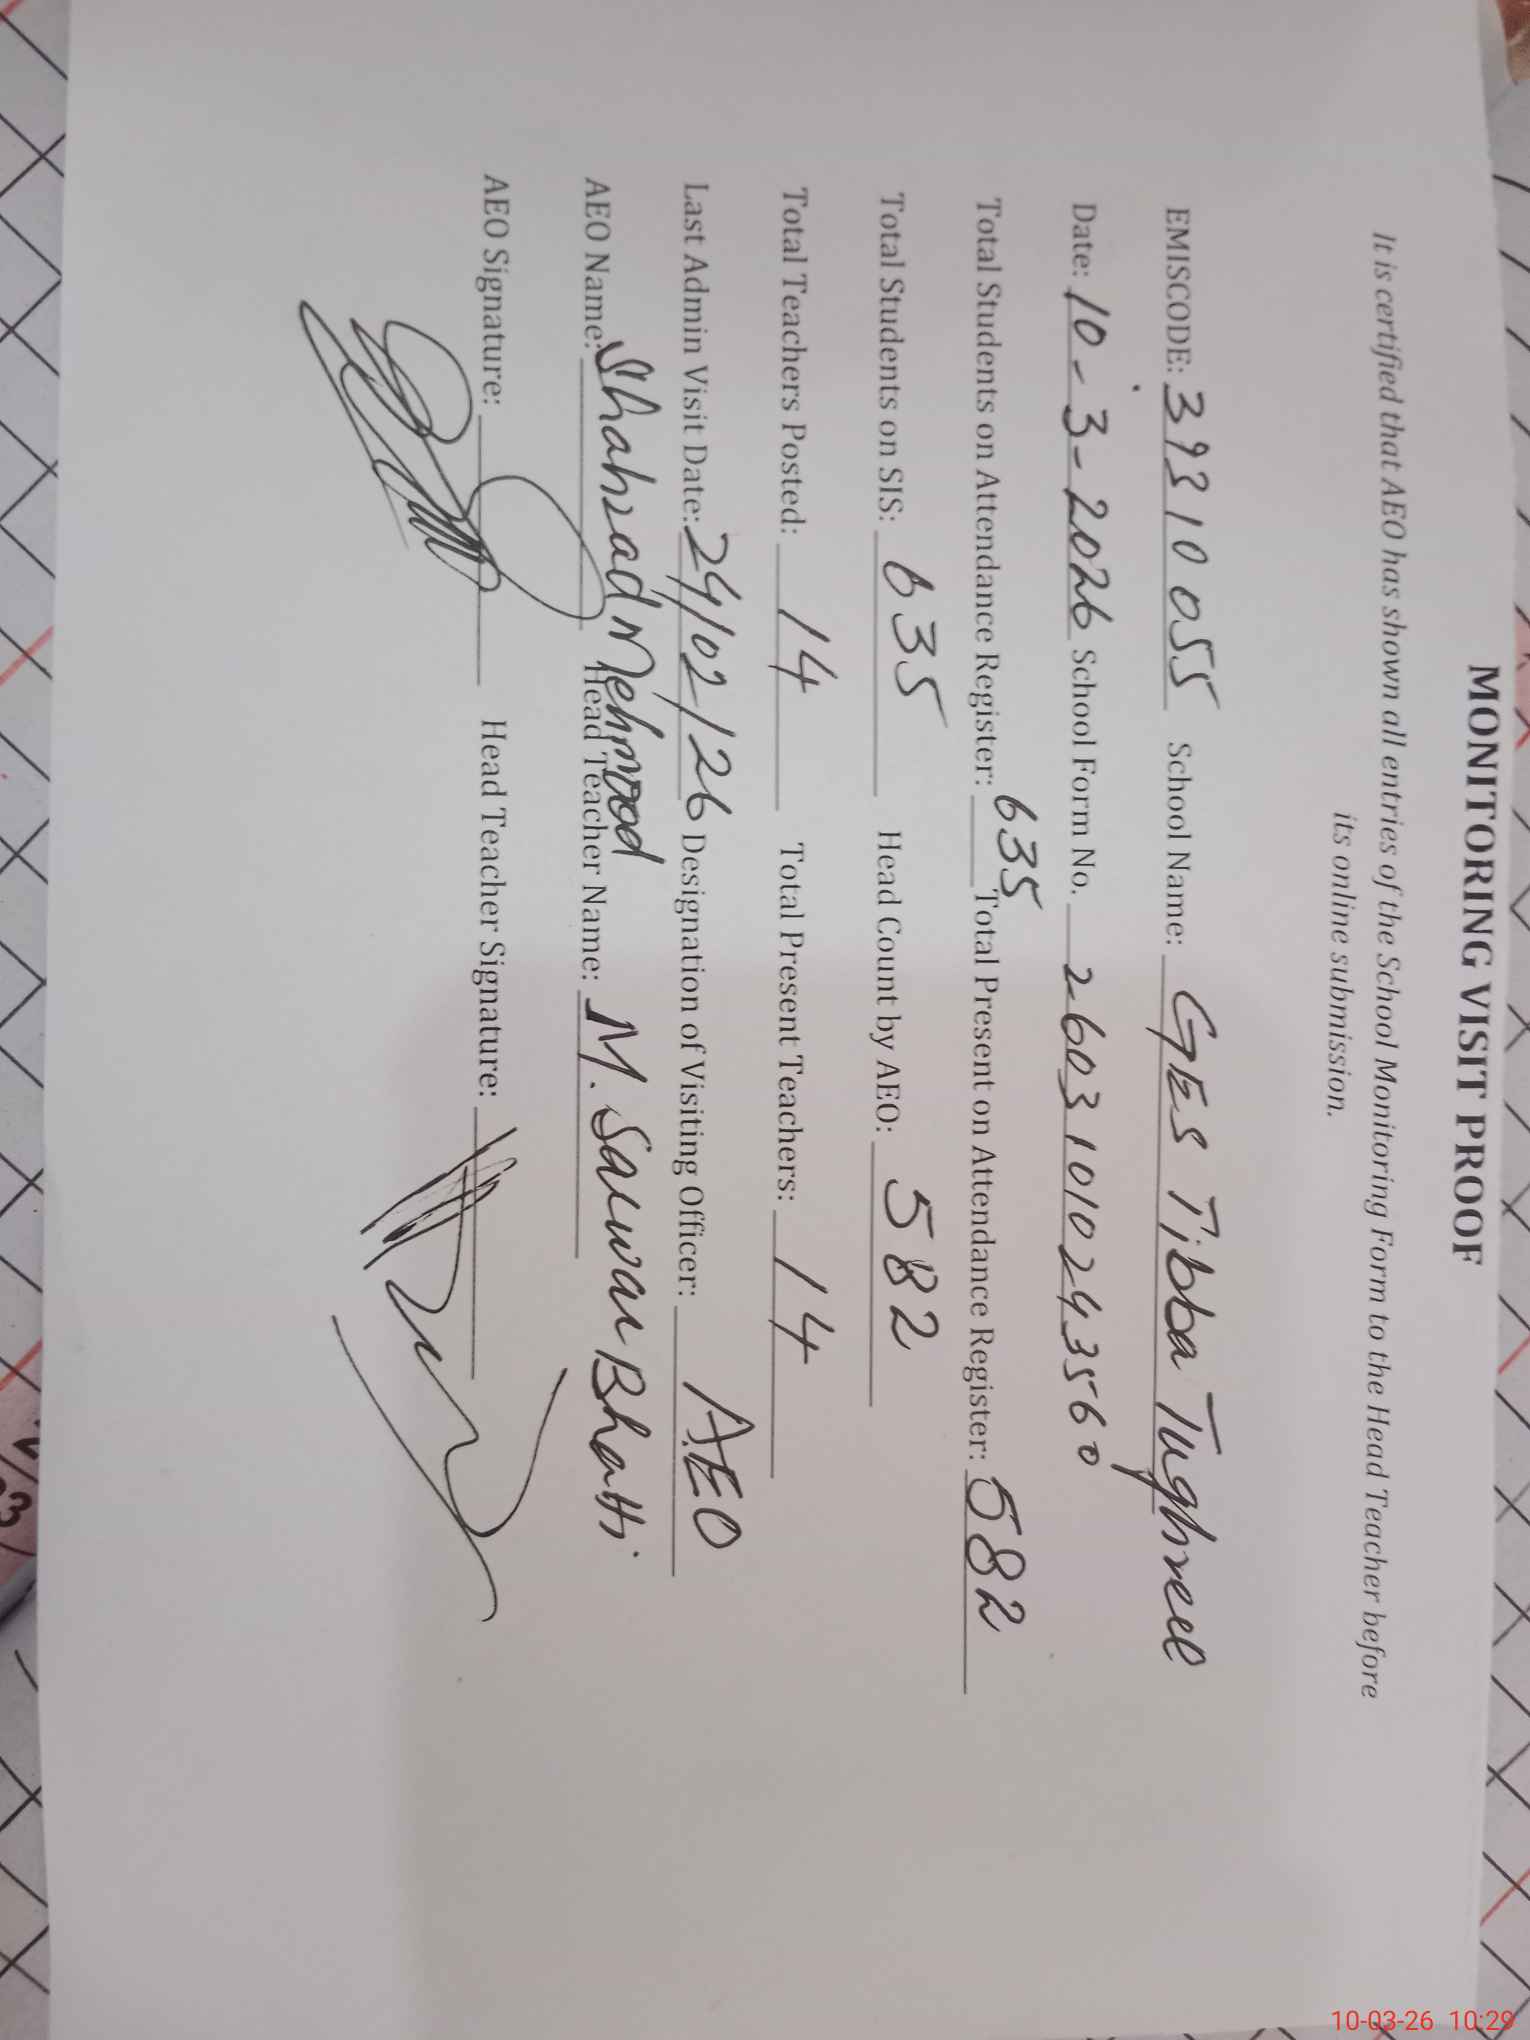 MONITORING VISIT PROOF
It is certified that AEO has shown all entries of the School Monitoring Form to the Head Teacher before
its online submission.
EMISCODE: 39310055 School Name: GES Tibba Tughreel
Date: 10-3-2026 School Form No. 26031010243560
Total Students on Attendance Register: 635 Total Present on Attendance Register: 582
Total Students on SIS: 635 Head Count by AEO: 582
Total Teachers Posted: 14 Total Present Teachers: 14
Last Admin Visit Date: 24/02/26 Designation of Visiting Officer: AEO
AEO Name: Shahzad Mehmood Head Teacher Name: M. Sarwar Bhatti
AEO Signature: Head Teacher Signature:
10-03-26 10:29